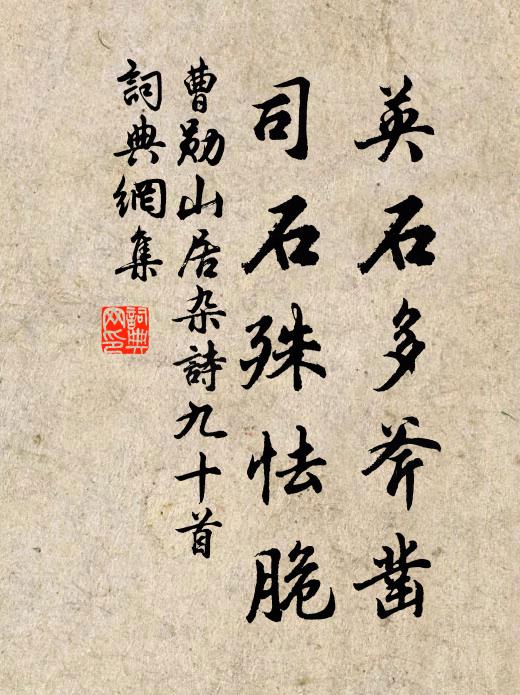 英石多斧鑿
司石殊怯脆
曹勛山居杂詩九十首
詞典網集
詞典網印